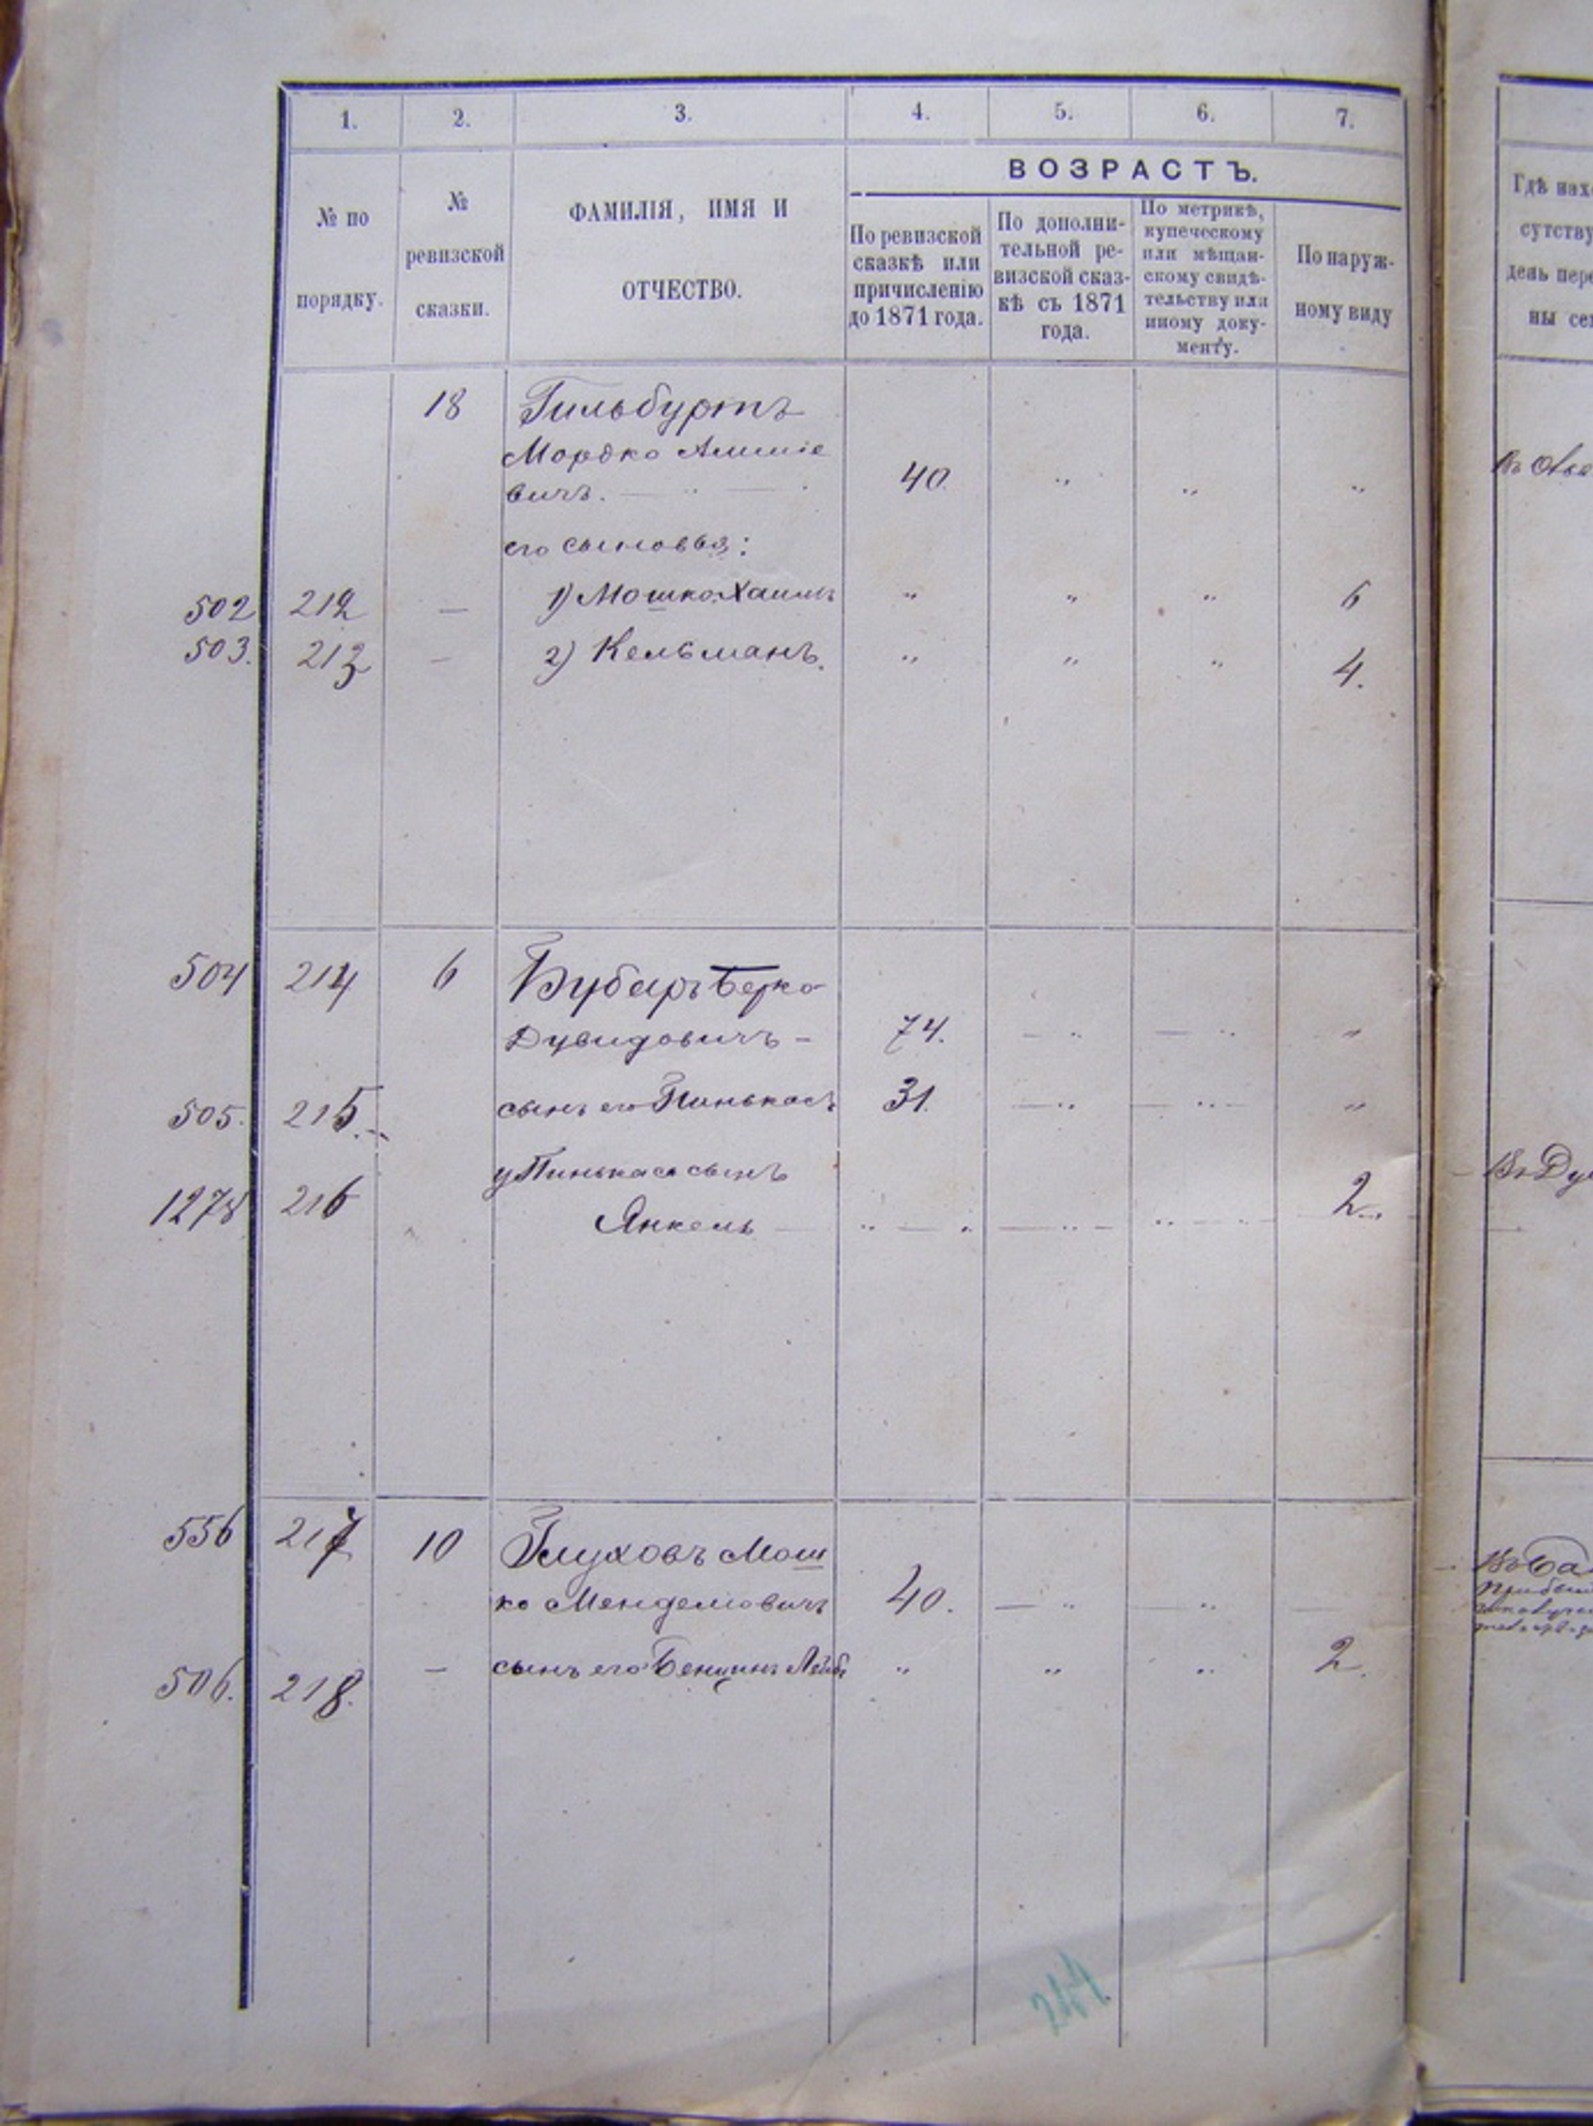 1. 2. 3. 4. 5. 6. 7.
№ по порядку.
№ ревизской сказки.
ФАМИЛІЯ, ИМЯ И ОТЧЕСТВО.
ВОЗРАСТЪ.
По ревизской сказкѣ или причисленію до 1871 года.
По дополни-тельной ре-визской сказ-кѣ съ 1871 года.
По метрикѣ, купеческому или мѣщан-скому свидѣ-тельству или иному доку-менту.
По наруж-ному виду
18 Гильбуртъ
Мордко
вичъ. 40. " " "
его сыновья:
502 212 — 1) Мошко Хаимъ " " " 6
503. 213 — 2) Кельманъ. " " " 4.
504 214 6 Бубаръ Берко
Дувидовичъ - 74. — " — " "
505. 215. сынъ его Пинькасъ 31. — " — " "
у Пинькаса сынъ
1278 216 Янкель 2.
556 217 10 Глуховъ Мош
ко Менделовичъ 40. — " — " —
506. 218. — сынъ его " " " 2.
Гдѣ
сутству
день пере
Въ